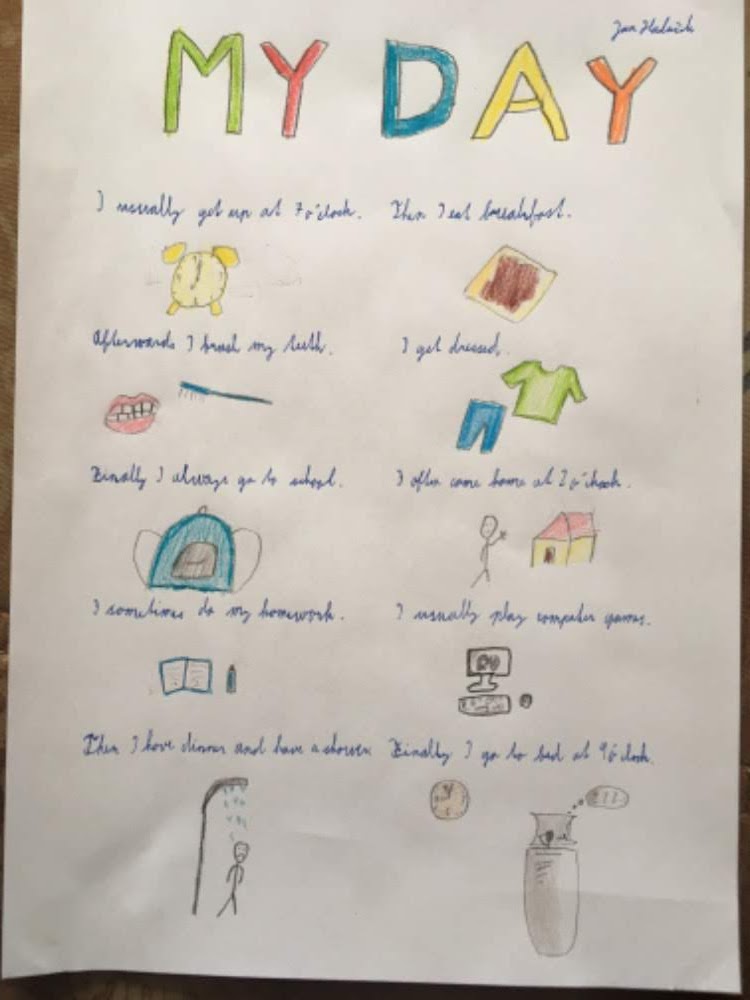 Jan
MY DAY
I usually get up at 7 o'clock. Then I eat breakfast.
Afterwards I brush my teeth. I get dressed.
Finally I always go to school. I often come home at 2 o'clock.
I sometimes do my homework. I usually play computer games.
Then I have dinner and have a shower. Finally I go to bed at 9 o'clock.